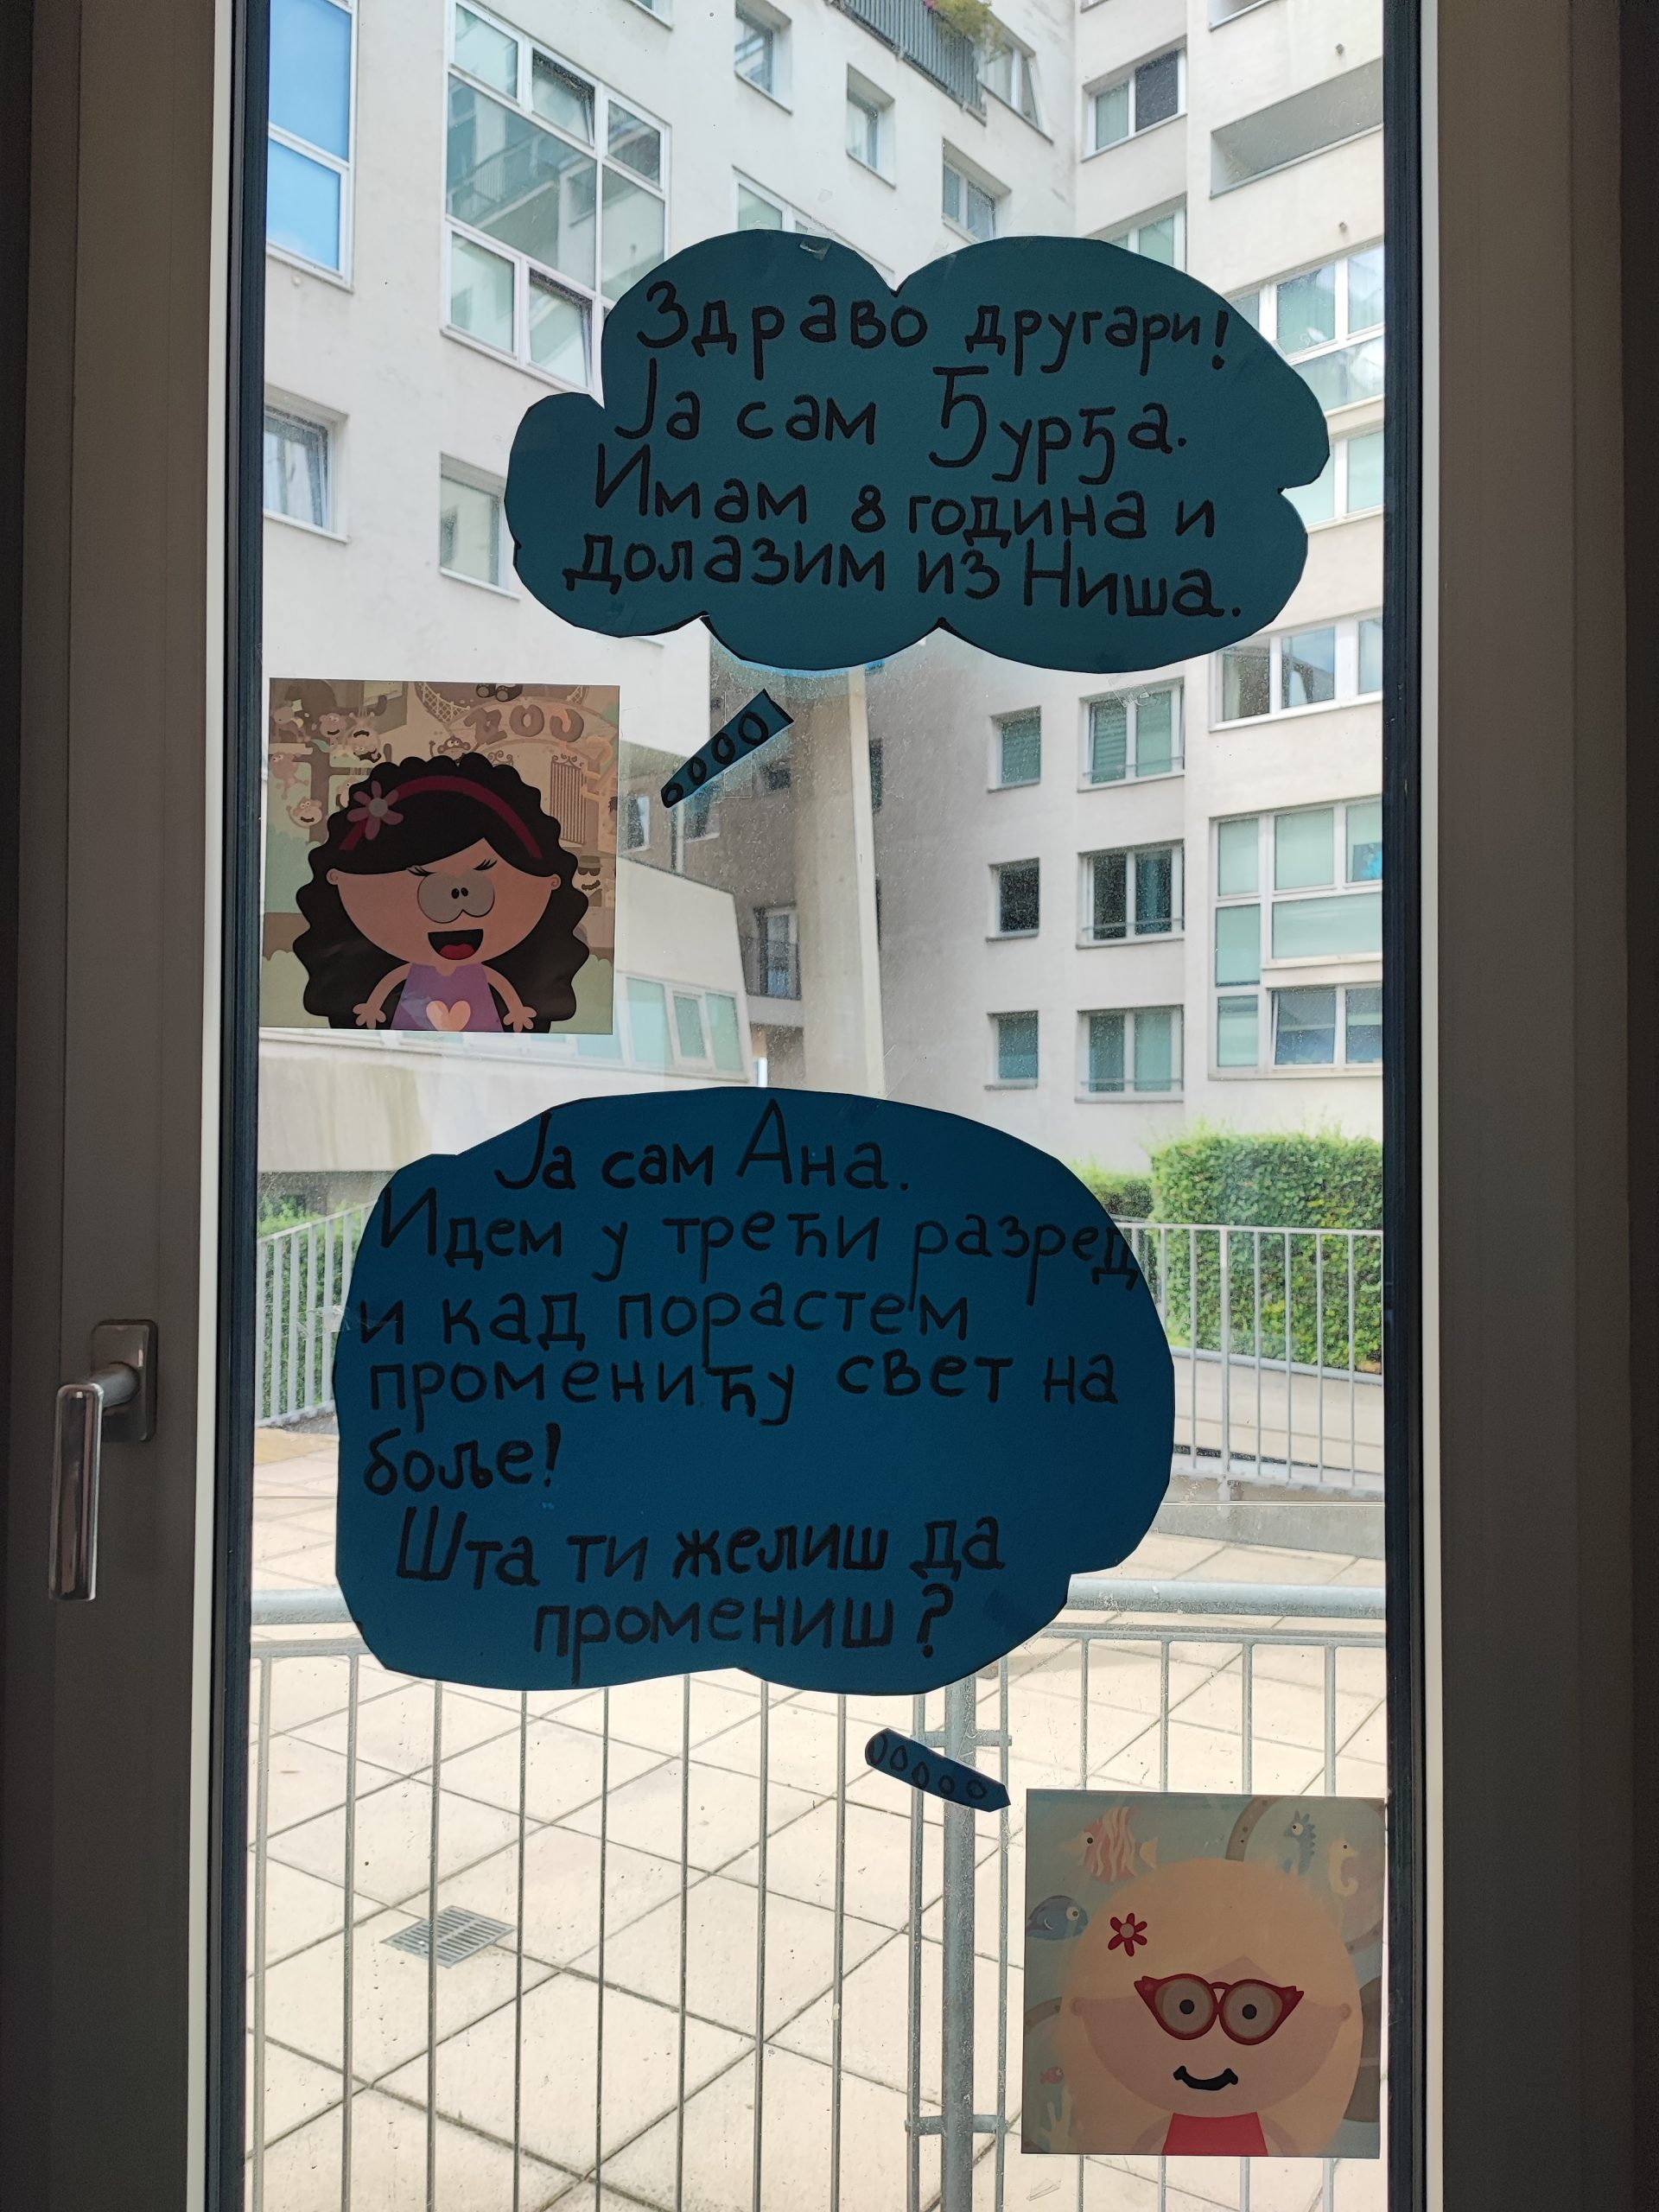 Здраво другари!
Ја сам Ђурђа.
Имам 8 година и
долазим из Ниша.
ZOO
Ја сам Ана.
Идем у трећи разред
и кад порастем
променићу свет на
боље!
Шта ти желиш да
промениш?